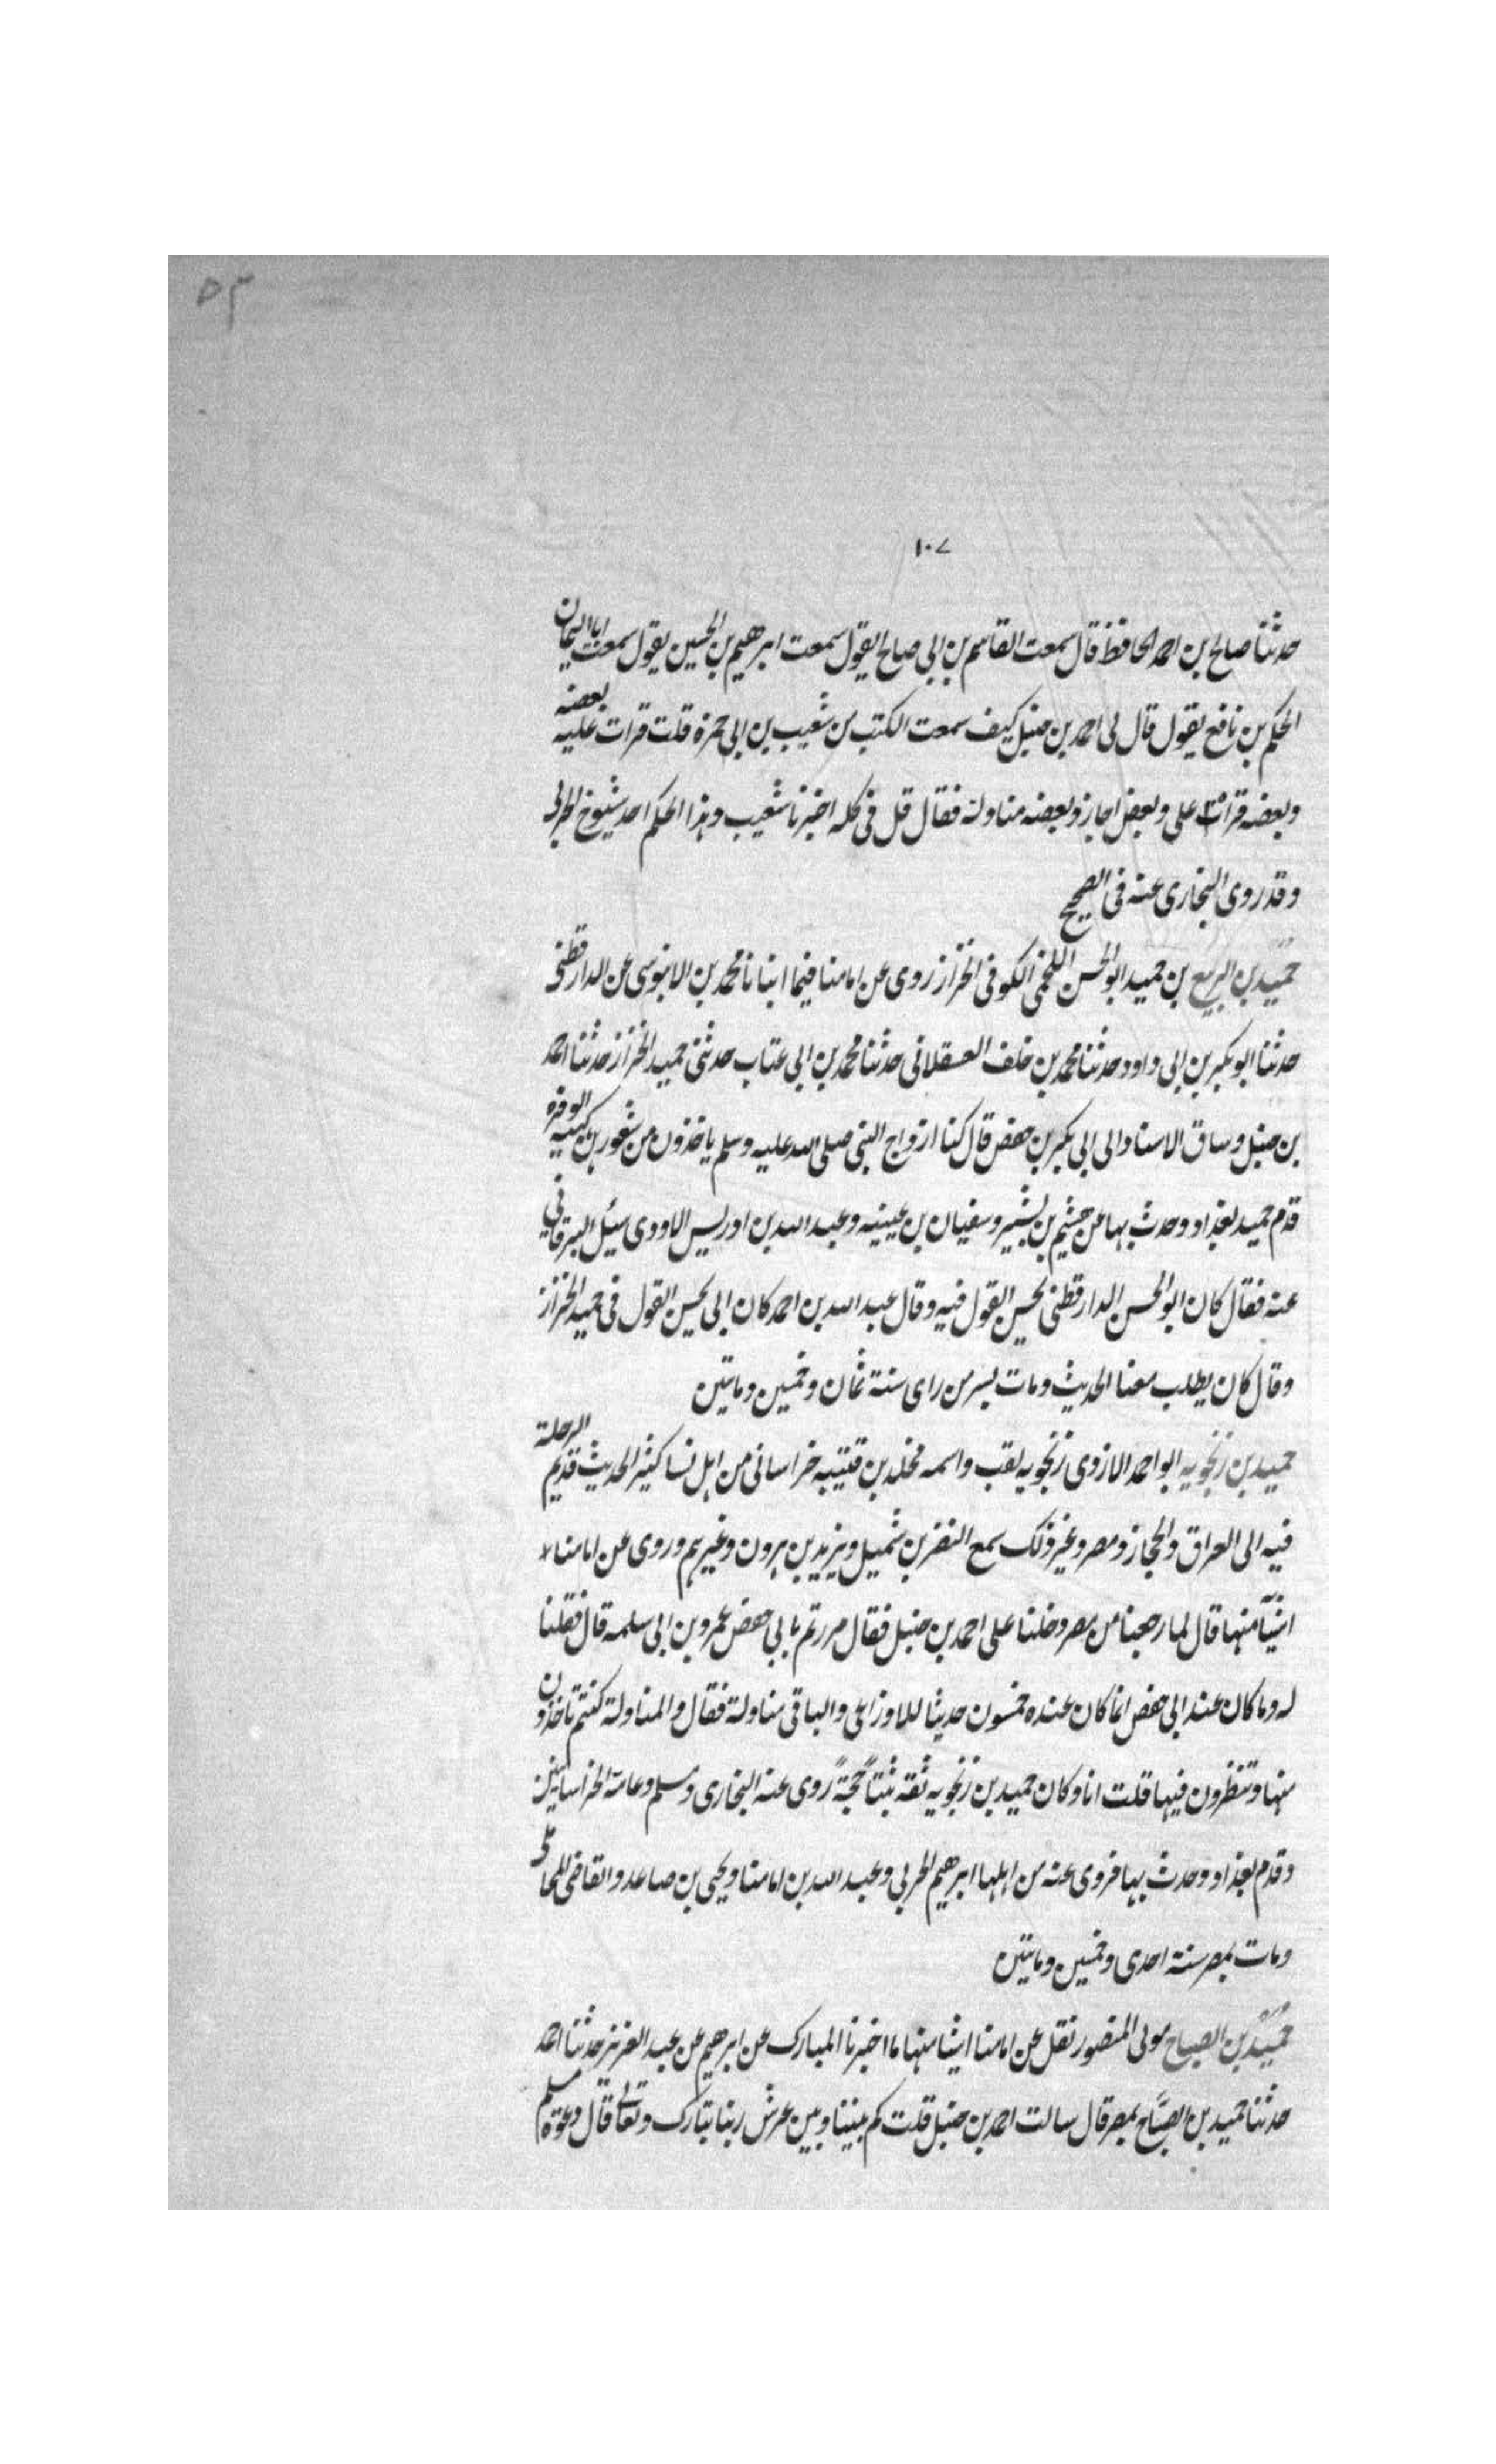 ٥٣
١٠٧
حدثنا صالح بن احمد الحافظ قال سمعت القاسم بن ابى صالح يقول سمعت ابرهيم بن الحسين يقول سمعت ابا اليمان
الحكم بن نافع يقول قال لى احمد بن حنبل كيف سمعت الكتب من شعيب بن ابى حمزه قلت قرات عليه بعضه
وبعضه قراه على وبعض اجاز وبعضه مناولة فقال قل فى كله اخبرنا شعيب وهذا الحكم احد شيوخ
وقد روى البخارى عنه فى الصحيح
حميد بن الربيع بن حميد ابو الحسن اللخمى الكوفى الخزاز روى عن امامنا فيما انبانا محمد بن الابنوسى عن الدارقطنى
حدثنا ابو بكر بن ابى داود حدثنا محمد بن خلف العسقلانى حدثنا محمد بن ابى عتاب حدثنى حميد الخزاز حدثنا احمد
بن حنبل وساق الاسناد الى ابى بكر بن حفص قال كنا ازواج النبى صلى الله عليه وسلم ياخذون من شعورهن كهيية الوفره
قدم حميد بغداد وحدث بها عن هشيم بن بشير وسفيان بن عيينه وعبد الله بن ادريس الاودى سئل البرقانى
عنه فقال كان ابو الحسن الدارقطنى يحسن القول فيه وقال عبد الله بن احمد كان ابى يحسن القول فى حميد الخزاز
وقال كان يطلب معنا الحديث ومات بسر من راى سنة ثمان وخمسين وماتين
حميد بن زنجويه ابو احمد الازدى زنجويه لقب واسمه مخلد بن قتيبه خراسانى من اهل نسا كثير الحديث قديم الرحلة
فيه الى العراق والحجاز ومصر وغير ذلك سمع النضر بن شميل ويزيد بن هرون وغيرهم وروى عن امامنا
اشيآ منها قال لما رجعنا من مصر دخلنا على احمد بن حنبل فقال مررتم بابى حفص عمرو بن ابى سلمه قال فقلنا
له وما كان عند ابى حفص انما كان عنده خمسون حديثا للاوزاعى والباقى مناولة فقال والمناولة كنتم تاخذون
منها وتنظرون فيها قلت انا وكان حميد بن زنجويه ثقه ثبتا حجة روى عنه البخارى ومسلم وعامة الخراسانيين
وقدم بغداد وحدث بها فروى عنه من اهلها ابرهيم الحربى وعبد الله بن امامنا ويحيى بن صاعد والقاضى المحاملى
ومات بمصر سنة احدى وخمسين وماتين
حميد بن الصباح مولى المنصور نقل عن امامنا اشيا منها ما اخبرنا المبارك عن ابرهيم عن عبد العزيز حدثنا احمد
حدثنا حميد بن الصباح بمصر قال سالت احمد بن حنبل قلت كم بيننا وبين عرش ربنا تبارك وتعالى قال دعوة مسلم